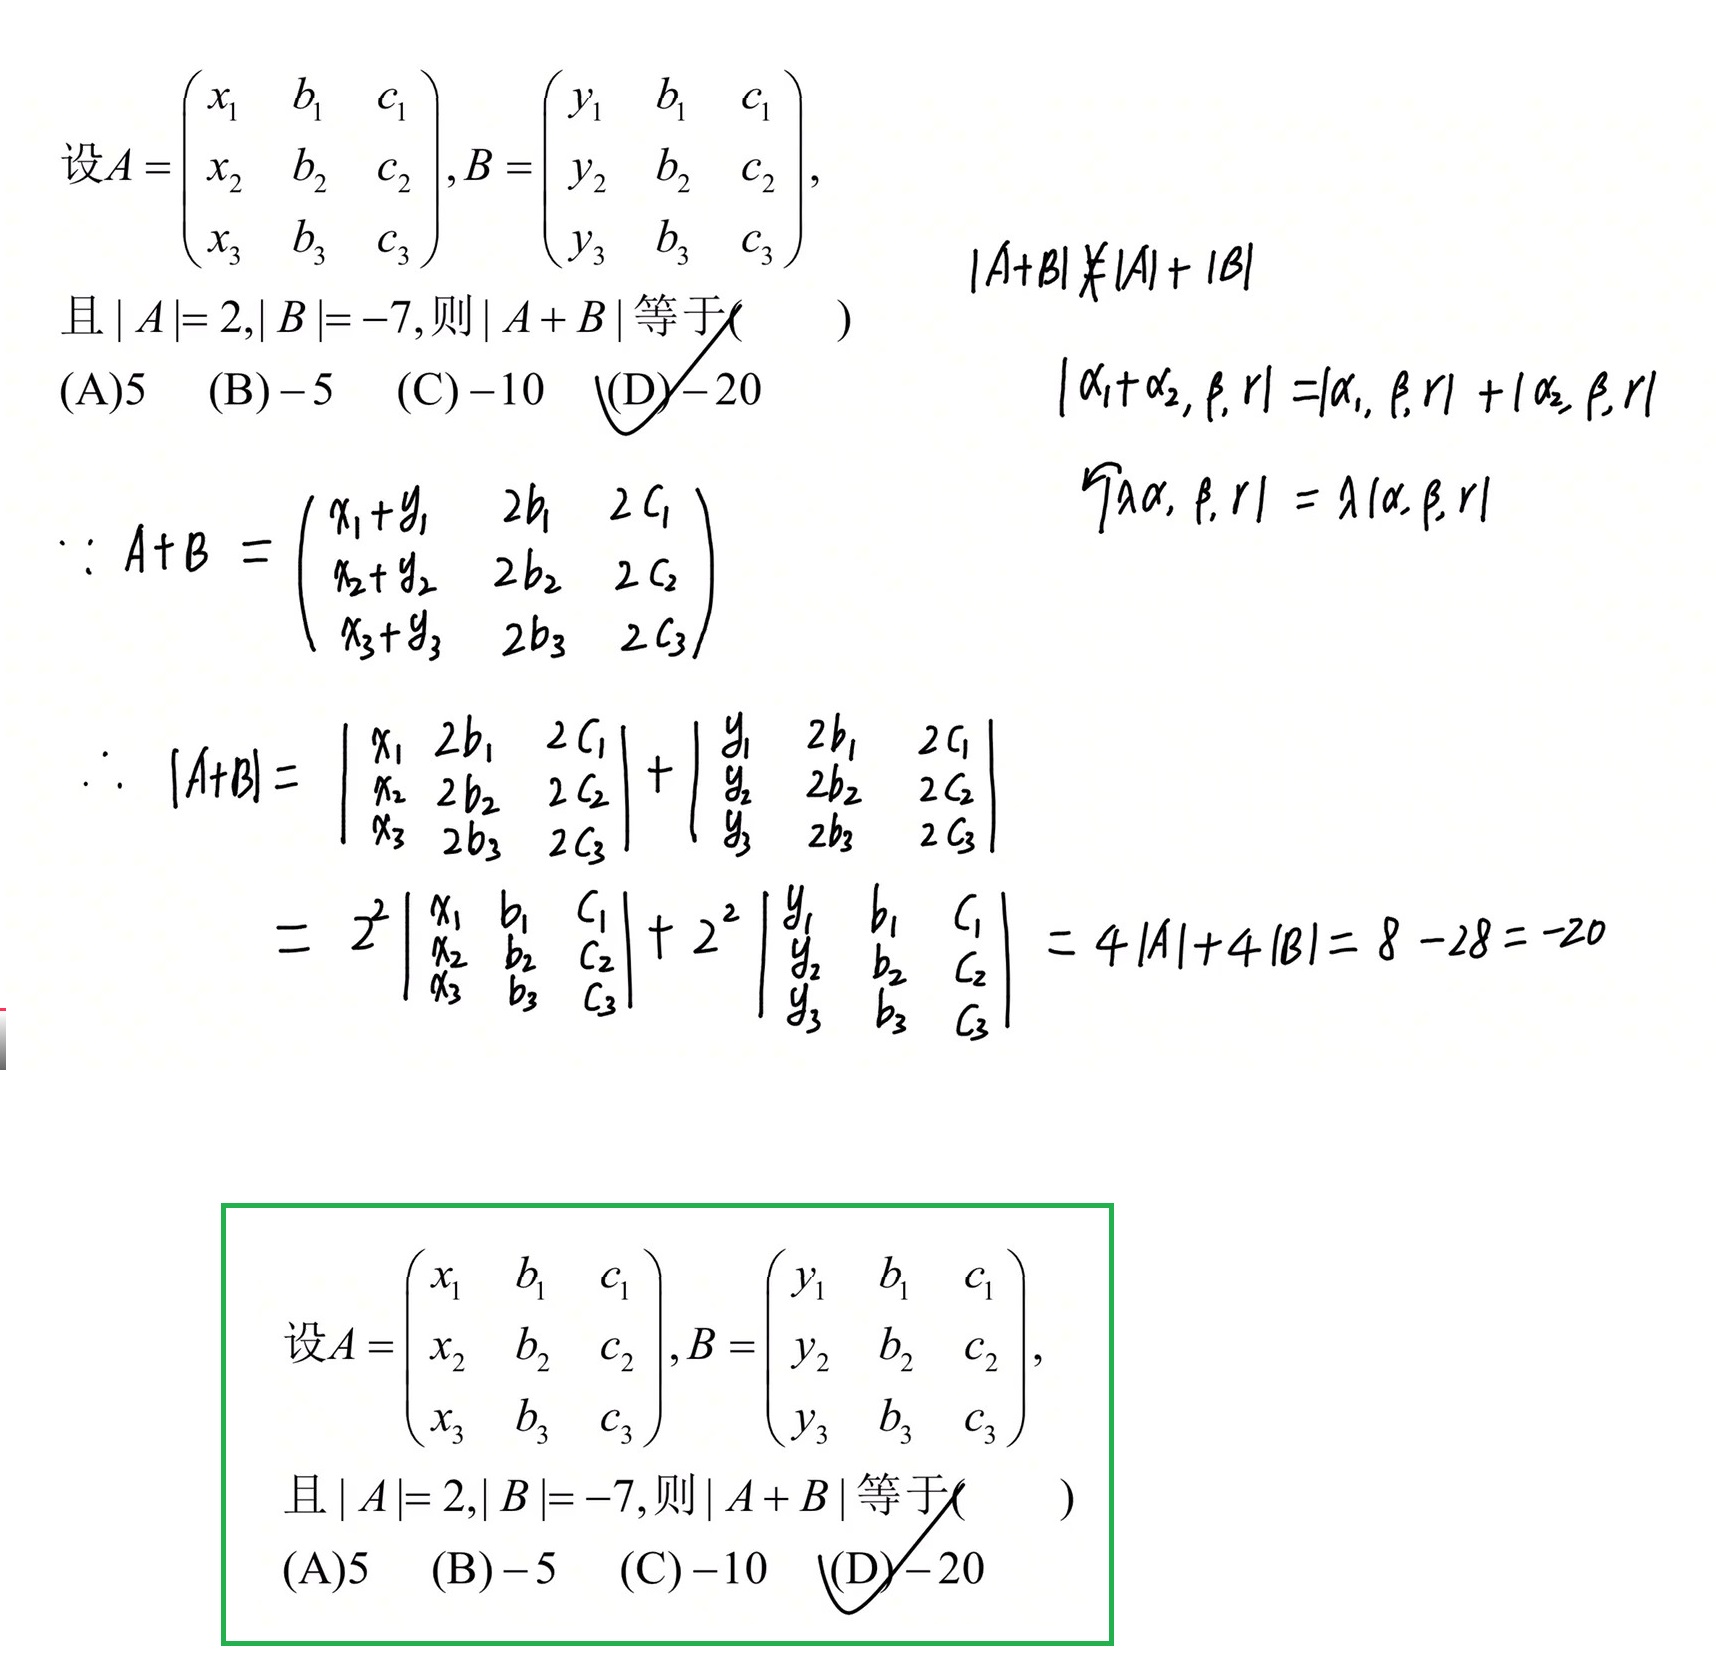 设A = ( x₁ b₁ c₁ ; x₂ b₂ c₂ ; x₃ b₃ c₃ ), B = ( y₁ b₁ c₁ ; y₂ b₂ c₂ ; y₃ b₃ c₃ ),
且 | A |= 2,| B |= −7,则 | A + B | 等于( )
(A)5 (B)−5 (C)−10 (D)−20
|A+B| ≠ |A| + |B|
|α₁+α₂, β, γ| = |α₁, β, γ| + |α₂, β, γ|
|λα, β, γ| = λ|α, β, γ|
∵ A+B = ( x₁+y₁ 2b₁ 2c₁ ; x₂+y₂ 2b₂ 2c₂ ; x₃+y₃ 2b₃ 2c₃ )
∴ |A+B| = | x₁ 2b₁ 2c₁ ; x₂ 2b₂ 2c₂ ; x₃ 2b₃ 2c₃ | + | y₁ 2b₁ 2c₁ ; y₂ 2b₂ 2c₂ ; y₃ 2b₃ 2c₃ |
= 2² | x₁ b₁ c₁ ; x₂ b₂ c₂ ; x₃ b₃ c₃ | + 2² | y₁ b₁ c₁ ; y₂ b₂ c₂ ; y₃ b₃ c₃ | = 4|A| + 4|B| = 8 − 28 = −20
设A = ( x₁ b₁ c₁ ; x₂ b₂ c₂ ; x₃ b₃ c₃ ), B = ( y₁ b₁ c₁ ; y₂ b₂ c₂ ; y₃ b₃ c₃ ),
且 | A |= 2,| B |= −7,则 | A + B | 等于( )
(A)5 (B)−5 (C)−10 (D)−20